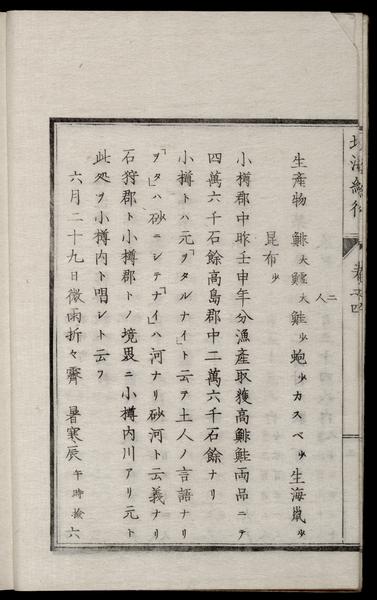 二人
生産物 鯡大 鱈大 鮭少 鮑少 カスベ少 生海鼠少
昆布少
小樽郡中昨壬申年分漁産取獲高鯡鮭両品ニテ
四萬六千石餘高島郡中二萬六千石餘ナリ
小樽トハ元「ヲタルナイ」ト云フ土人ノ言語ナリ
「ヲタ」ハ砂ニシテ「ナイ」ハ河ナリ砂河ト云義ナリ
石狩郡ト小樽郡トノ境界ニ小樽内川アリ元ト
此処ヲ小樽内ト唱レト云フ
六月二十九日微雨折々霽 暑寒辰 午時撿六